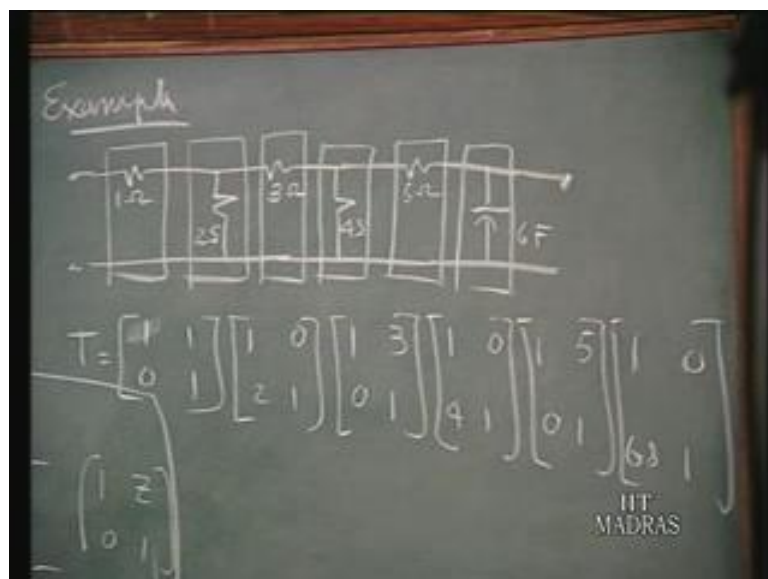 Example
1Ω 2S 3Ω 4S 5Ω 6F
T = [1 1 0 1] [1 0 2 1] [1 3 0 1] [1 0 4 1] [1 5 0 1] [1 0 6s 1]
[1 Z 0 1]
IIT
MADRAS